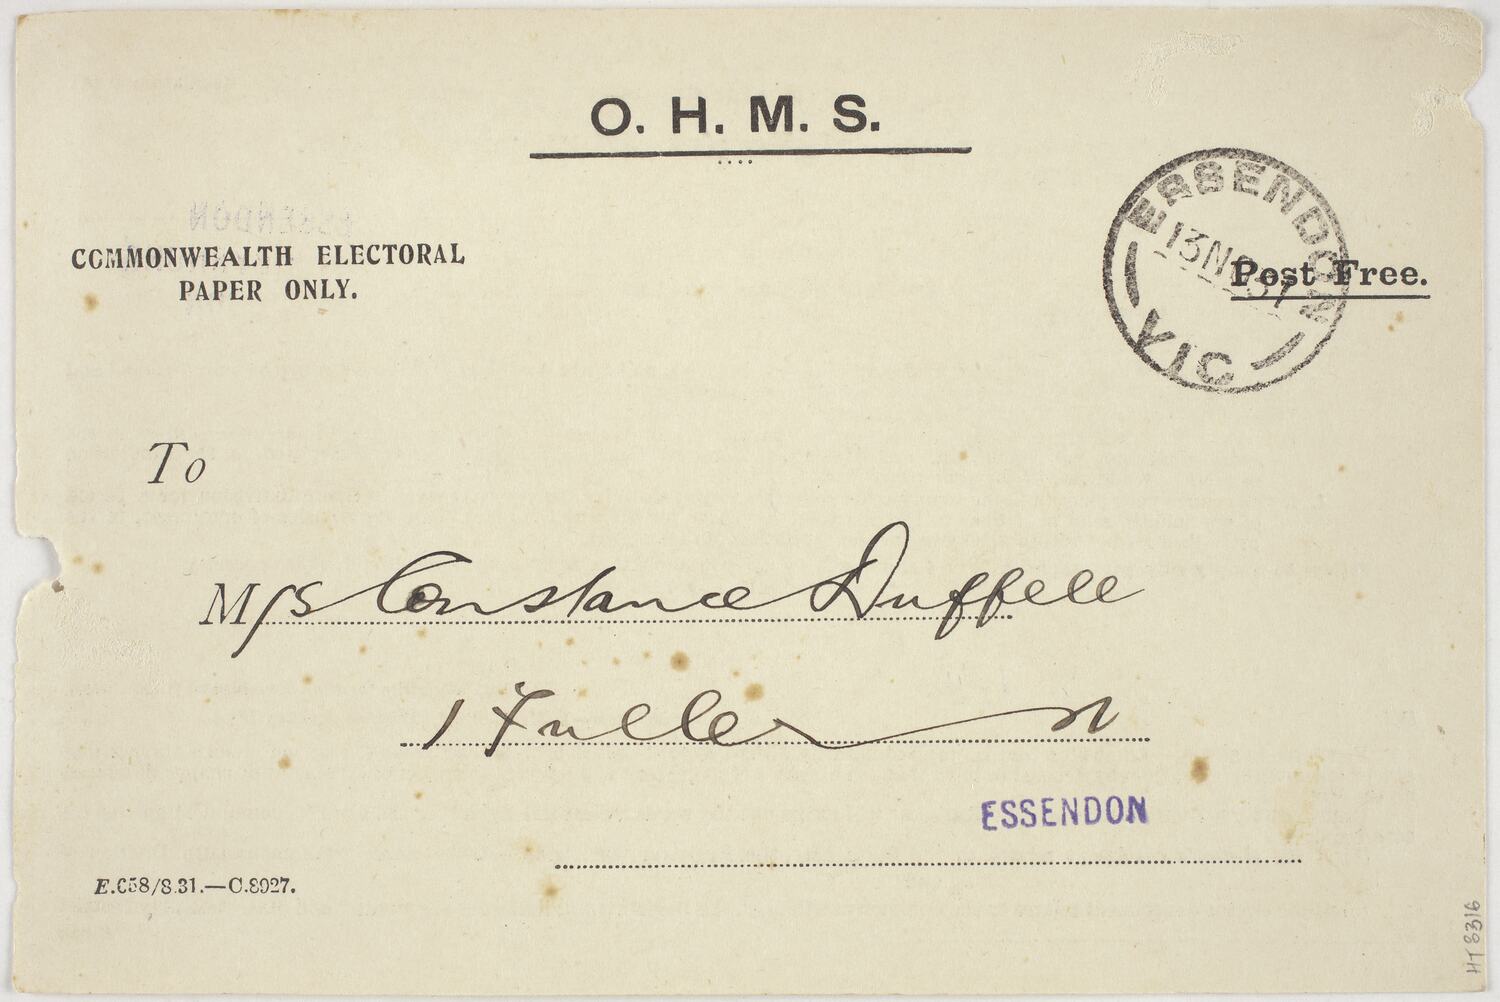 O. H. M. S.
COMMONWEALTH ELECTORAL
PAPER ONLY.
ESSENDON
13 NO 31
VIC
Post Free.
To
M/s Constance Duffell
1 Fuller St
ESSENDON
E.058/8.31.—C.8927.
HT 8316